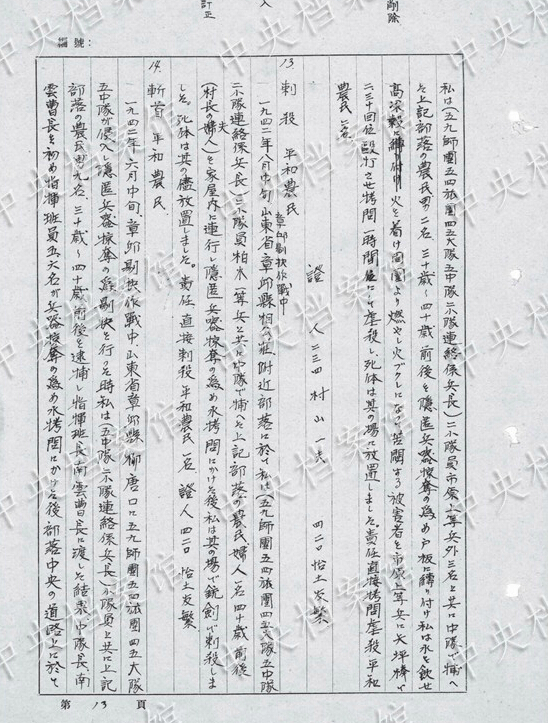 削除
入
訂正
編號：
私は(五九師團五四旅團四五大隊五中隊二小隊連絡係兵長)二小隊員市原上等兵外三名と共に中隊で捕へ
た上記部落の農民男二名、三十歳～四十歳前後を隠匿兵器掠奪の為め戸板に縛り付け私は水を飲せ
高梁殻に火を着け周囲より燃やし火ブクレになって苦悶する被害者を市原上等兵に天坪棒で
二三十回位毆打させ拷問一時間にして虐殺し死体は其の場に放置しました。責任直接拷問虐殺平和
農民二名
證人二三四村山一夫 四二〇
13. 刺殺 平和農民
章邱剔抉作戰中
一九四二年八月中旬山東省章邱縣附近部落に於て私は(五九師團五四旅團四五大隊五中隊
二小隊連絡係兵長)二小隊員柏木一等兵と共に中隊で捕へた上記部落の農民婦人一名四十歳前後
(村長の婦人)を家屋内に連行し隠匿兵器掠奪の為め水拷問にかけた後私は其の場で銃劍で刺殺しま
した。死体は其の儘放置しました。責任直接刺殺平和農民一名 證人四二〇
14. 斬首 平和農民
一九四二年六月中旬、章邱剔抉作戰中山東省章邱縣柳唐口に五九師團五四旅團四五大隊
五中隊が侵入し隠匿兵器掠奪の為剔抉を行った時私は(五中隊二小隊連絡係兵長)小隊員と共に上記
部落の農民男九名、三十歳～四十歳前後を逮捕し指揮班長南雲曹長に渡した結果中隊長、南
雲曹長を初め指揮班員五六名が兵器掠奪の為め水拷問にかけた後部落中央の道路上に於て
第 13 頁
中央档案馆